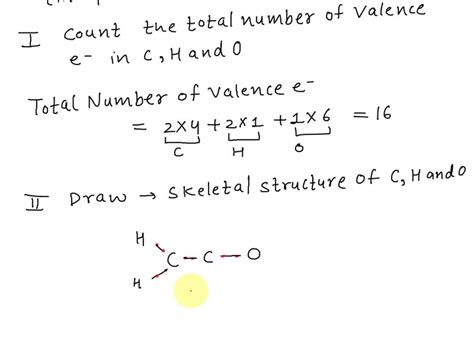 I Count the total number of valence
e- in C, H and O
Total Number of valence e-
= 2x4 + 2x1 + 1x6 = 16
C H O
II Draw → skeletal structure of C, H and O
H
C - C - O
H